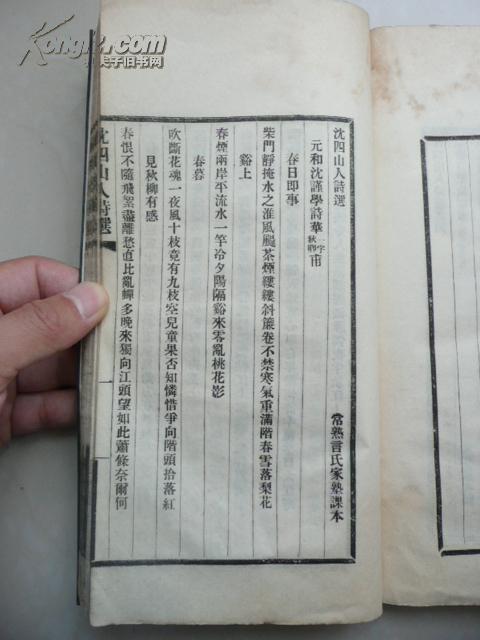 Kongfz.com
孔夫子旧书网
沈四山人詩選
常熟言氏家塾課本
元和沈謹學詩華一字秋卿甫
春日即事
柴門靜掩水之淮風颺茶煙縷縷斜簾卷不禁寒氣重滿階春雪落梨花
谿上
春煙兩岸平流水一竿冷夕陽隔谿來零亂桃花影
春暮
吹斷花魂一夜風十枝竟有九枝空兒童果否知憐惜爭向階頭拾落紅
見秋柳有感
春恨不隨飛絮盡離愁直比亂蟬多晚來獨向江頭望如此蕭條奈爾何
沈四山人詩選
一